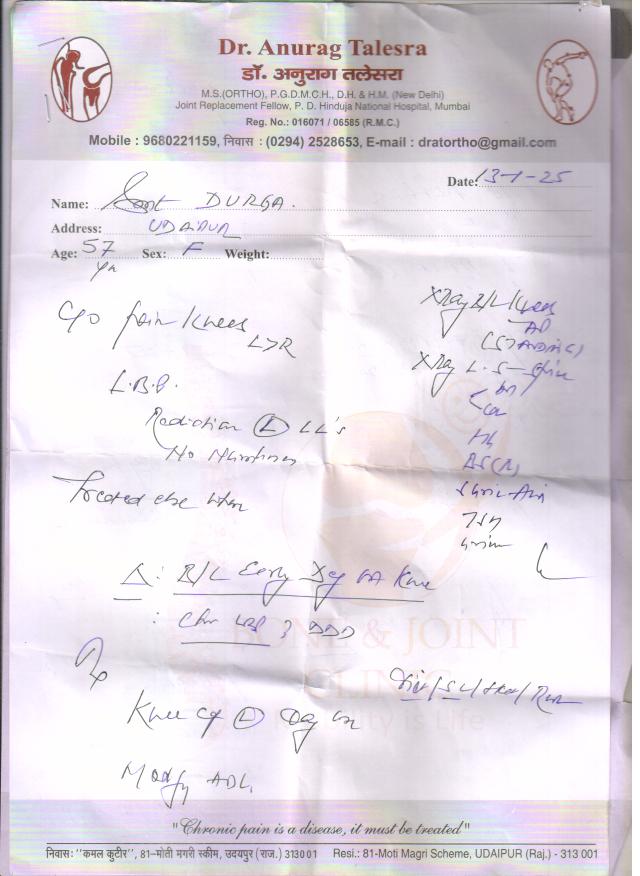 Dr. Anurag Talesra
डॉ. अनुराग तलेसरा
M.S.(ORTHO), P.G.D.M.C.H., D.H. & H.M. (New Delhi)
Joint Replacement Fellow, P. D. Hinduja National Hospital, Mumbai
Reg. No.: 016071 / 06585 (R.M.C.)
Mobile : 9680221159, निवास : (0294) 2528653, E-mail : dratortho@gmail.com
Date: 13-1-25
Name: DURGA.
Address: UDAIPUR
Age: 57 Sex: F Weight:
yr
C/o pain Knees
L>R
L.B.P.
Radiation (L) LL's
No Numbness
Treated else where
X Ray B/L Knees
AP
(STANDING)
X Ray L-S-Spine
AP
Hb
BS(R)
TSH
Δ: B/L Early Deg OA Knee
: Chr LBP ? DDD
BONE & JOINT
CLINIC
Mobility is Life
Rx
Knee Cap (L) Day use
Modify ADL
"Chronic pain is a disease, it must be treated"
निवास: "कमल कुटीर", 81-मोती मगरी स्कीम, उदयपुर (राज.) 313001 Resi.: 81-Moti Magri Scheme, UDAIPUR (Raj.) - 313 001